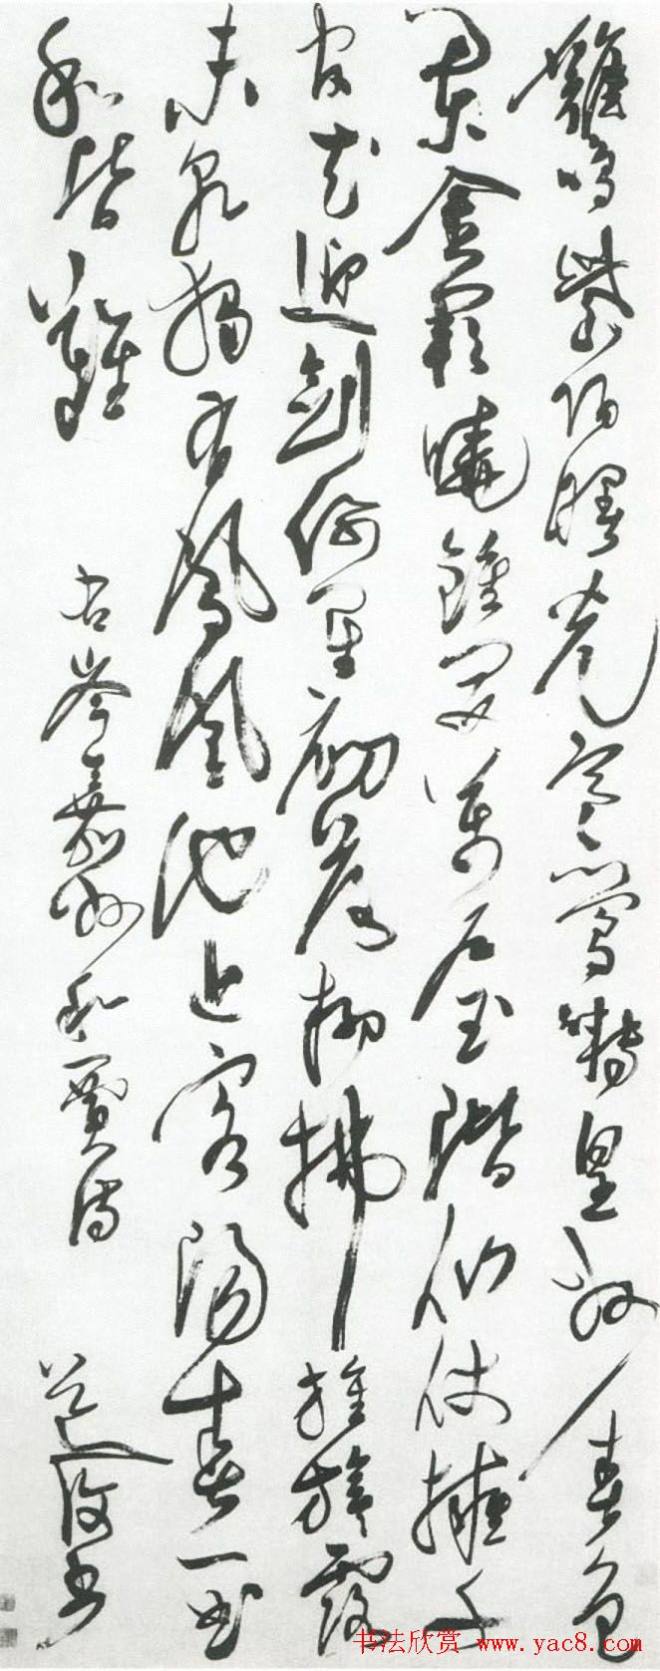 雞鳴紫陌曙光寒鶯囀皇州春色
闌金闕曉鐘開萬戶玉階仙仗擁千
官花迎劍佩星初落柳拂旌旗露
未乾獨有鳳凰池上客陽春一曲
和皆難
右岑嘉州和賈詩
道復書
书法欣赏 www.yac8.com